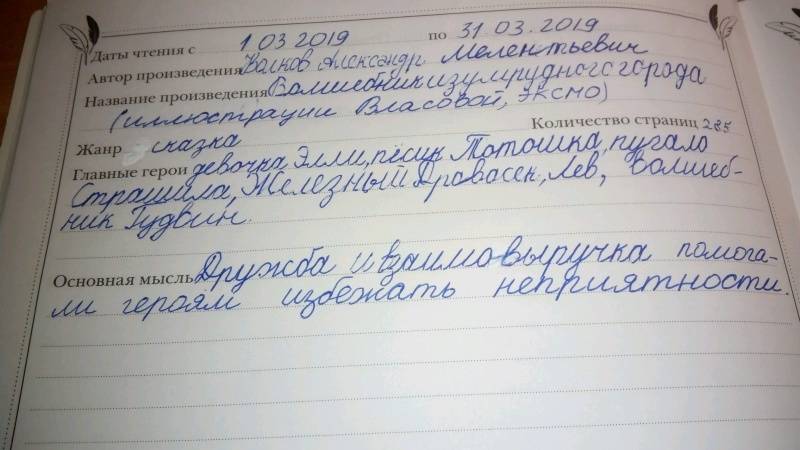 Даты чтения с 1 03 2019 по 31 03. 2019
Автор произведения Волков Александр Мелентьевич
Название произведения Волшебник изумрудного города
(иллюстрации Власовой, ЭКСМО)
Жанр сказка Количество страниц 285
Главные герои девочка Элли, пёсик Тотошка, пугало
Страшила, Железный Дровасек, Лев, Волшеб-
ник Гудвин.
Основная мысль Дружба и взаимовыручка помога-
ли героям избежать неприятности.